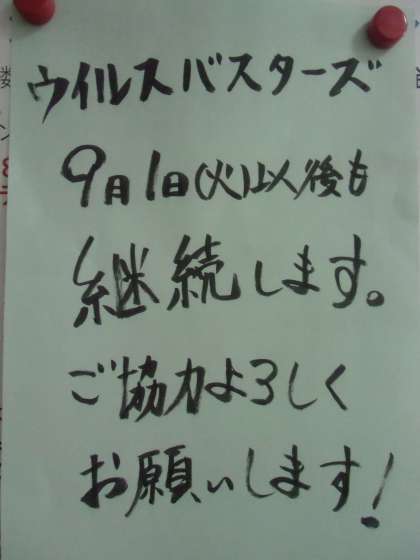 ウイルスバスターズ
9月1日(火)以後も
継続します。
ご協力よろしく
お願いします!